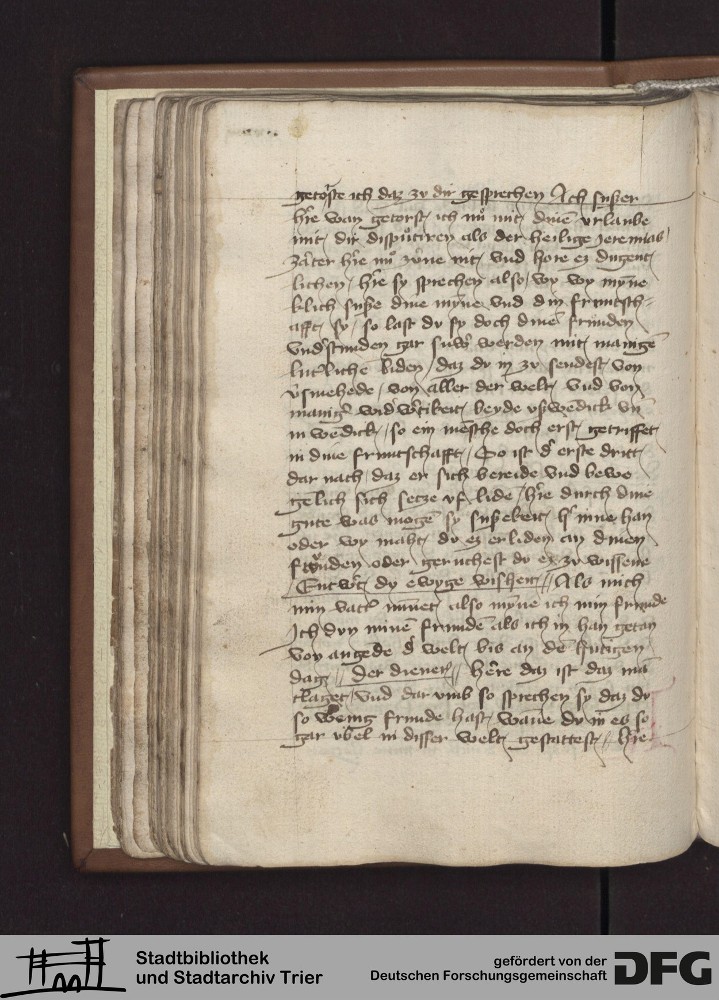 getorste ich daz zu dir gesprechen Ach susser
h're wan getorst ich nu mit dine͂ urlaube
mit dir disputiren als der heilige Jeremias
zarter h're nu zurne nit vnd hore ez dugent
lichen h're sy sprechen also wy wy myne
klich susse dine myne vnd din fruntsch-
afft sy so last du sy doch dine͂ frunden
vnd stunden gar suw' werden mit manige͂
liden daz du in zu sendest von
v'smehede von aller der welt vnd von
manig' wid'w'tikeit beyde vswedick vn͂
in wedick so ein me͂sche doch erst getriffet
in dine fruntschafft So ist d' erste dritt
dar nach daz er sich bereide vnd bewe
gelich sich setze vf lide͂ h're durch dine
gute was moge͂ sy sussekeit h' inne han
oder wy maht du ez erliden an dinen
frunden oder geruchest du ez zu wissene
Entw't dy ewyge wisheit // Als mich
min vatt' mi͂net also my͂ne ich min frunde
Ich dun mine͂ frunde͂ als ich in han getan
von angede d' welt bis an de͂ hutigen
dag // der diener // he're daz ist daz ma͂
claget vnd dar vmb so sprechen sy daz du
so wenig frunde hast wane du in es so
gar vbel in disser welt gestattest // h're
Stadtbibliothek
und Stadtarchiv Trier
gefördert von der
Deutschen Forschungsgemeinschaft
DFG